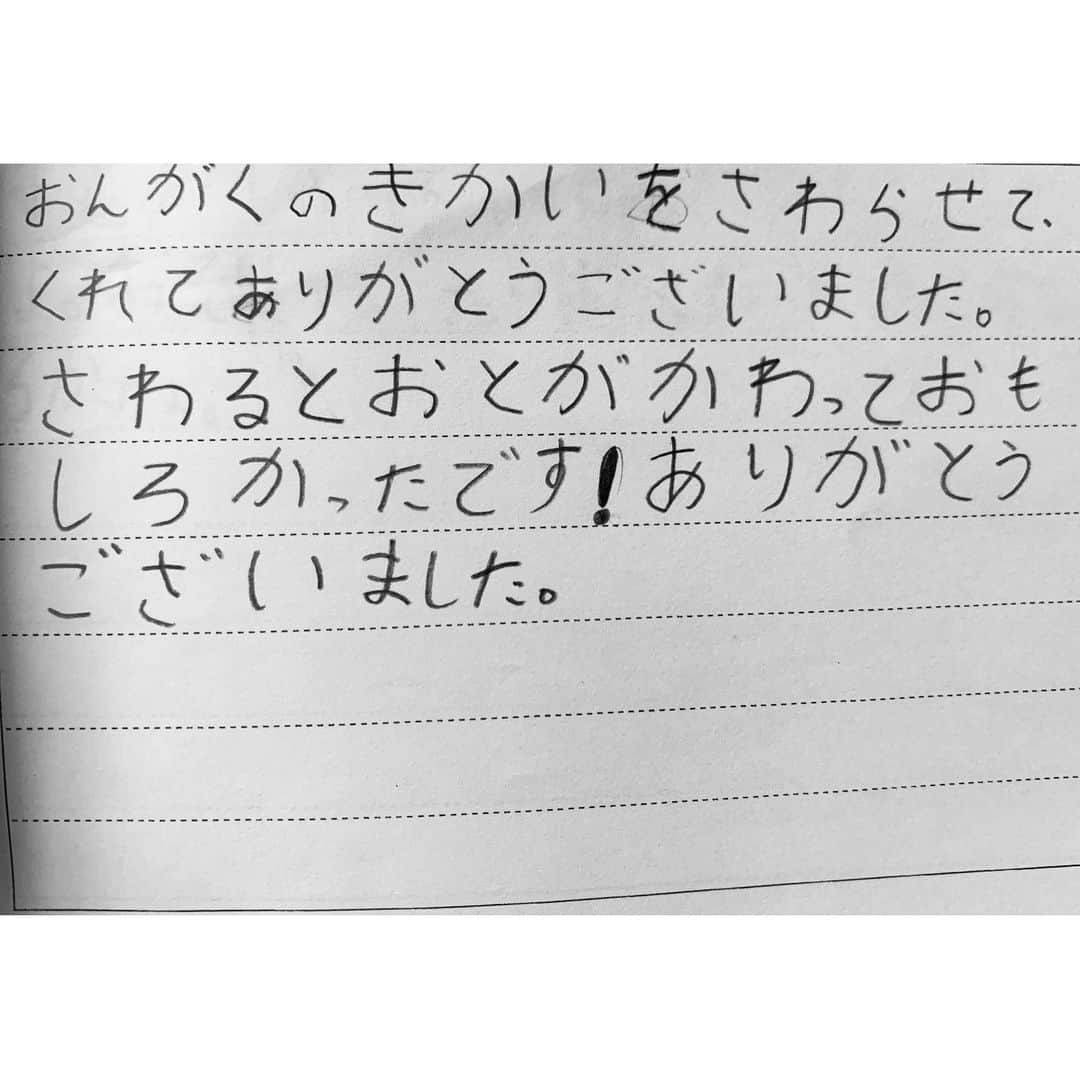 おんがくのきかいをさわらせて、
くれてありがとうございました。
さわるとおとがかわっておも
しろかったです!ありがとう
ございました。